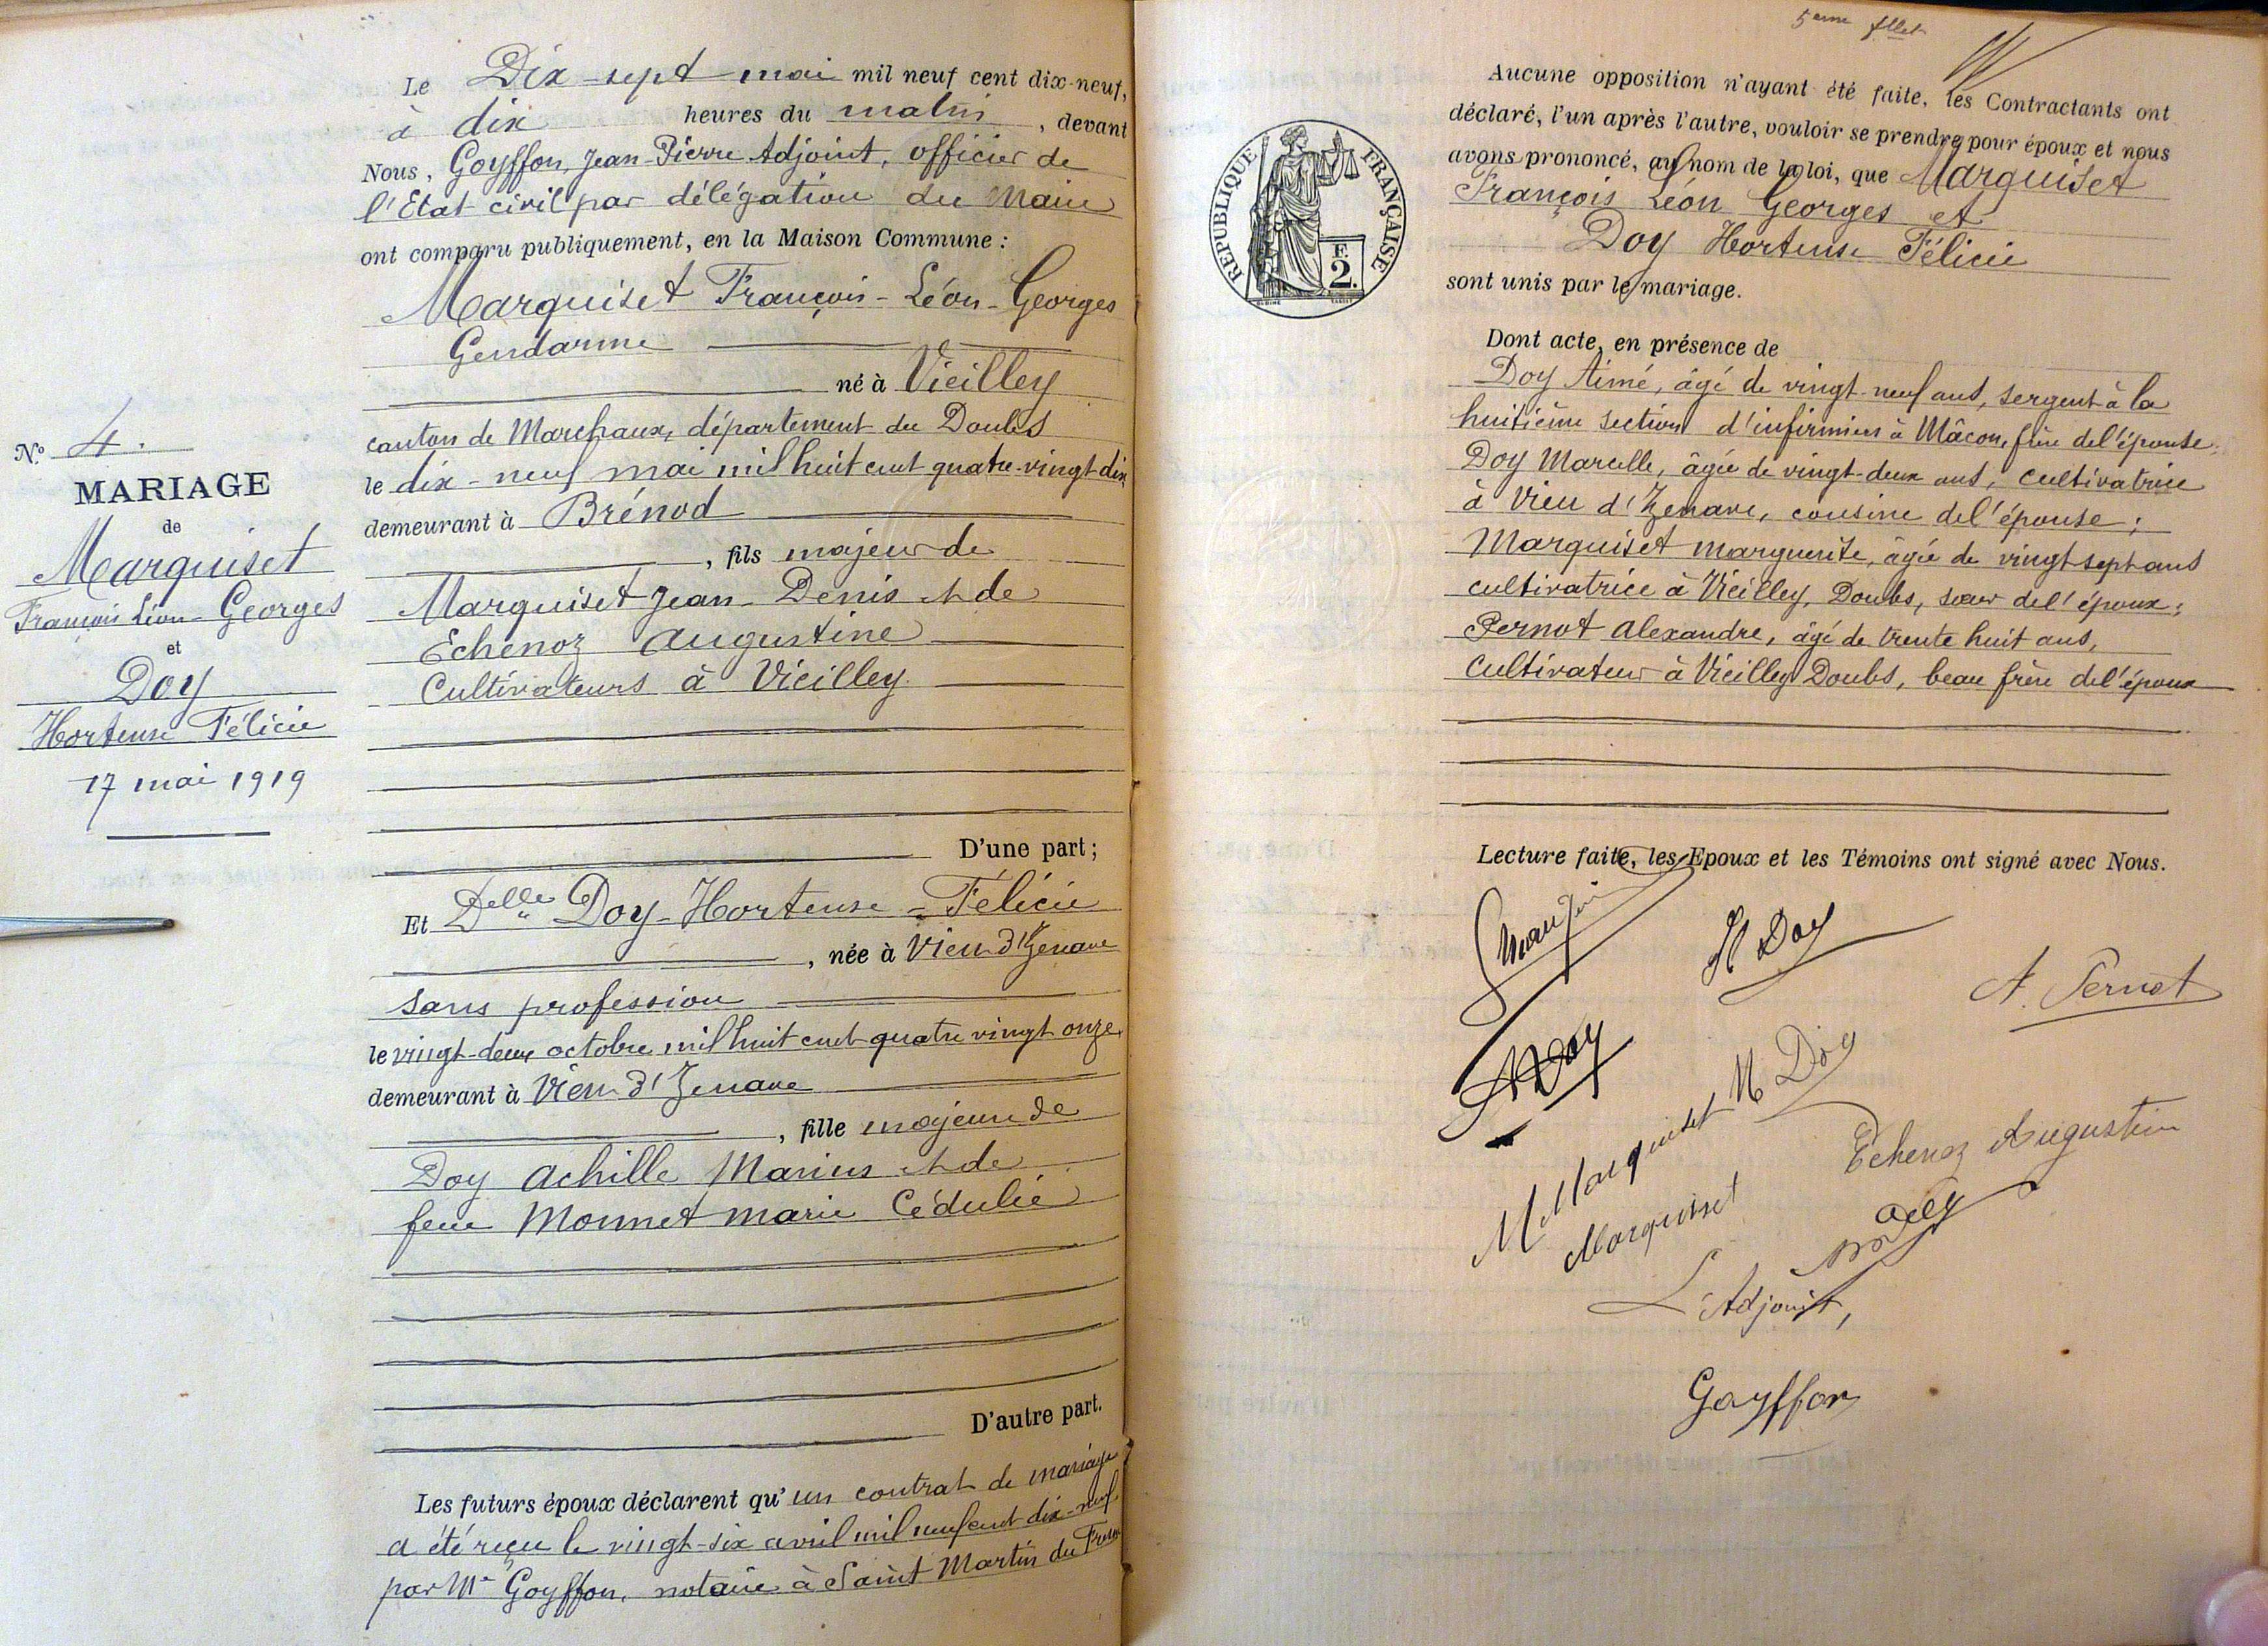 N.º 4.
MARIAGE
de
Marquiset
François Léon-Georges
et
Doy
Hortense Félicie
17 mai 1919
Le Dix-sept mai mil neuf cent dix-neuf,
à dix heures du matin, devant
Nous, Goyffon, Jean-Pierre Adjoint, officier de
l'Etat civil par délégation du Maire
ont comparu publiquement, en la Maison Commune :
Marquiset François-Léon-Georges
Gendarme
né à Vieilley
canton de Marchaux, département du Doubs
le dix-neuf mai mil huit cent quatre-vingt-dix
demeurant à Brénod
, fils majeur de
Marquiset Jean-Denis et de
Echenoz Augustine
Cultivateurs à Vieilley
D'une part;
Et Delle Doy-Hortense-Félicie
, née à Vieu d'Izenave
sans profession
le vingt-deux octobre mil huit cent quatre vingt onze
demeurant à Vieu d'Izenave
, fille majeure de
Doy Achille Marius et de
feue Monnet Marie Cédulie
D'autre part.
Les futurs époux déclarent qu'un contrat de mariage
a été reçu le vingt-six avril mil neuf cent dix-neuf
par Me Goyffon, notaire à Saint Martin du Fresne
5eme
RÉPUBLIQUE FRANÇAISE
F.
2.
Aucune opposition n'ayant été faite, les Contractants ont
déclaré, l'un après l'autre, vouloir se prendre pour époux et nous
avons prononcé, au nom de la loi, que Marquiset
François Léon Georges et
Doy Hortense Félicie
sont unis par le mariage.
Dont acte, en présence de
Doy Aimé, âgé de vingt-neuf ans, sergent à la
huitième section d'infirmiers à Mâcon, frère de l'épouse;
Doy Marcelle, âgée de vingt-deux ans, cultivatrice
à Vieu d'Izenave, cousine de l'épouse;
Marquiset Marguerite, âgée de vingt sept ans
cultivatrice à Vieilley, Doubs, sœur de l'époux;
Pernot Alexandre, âgé de trente huit ans,
Cultivateur à Vieilley Doubs, beau frère de l'époux
Lecture faite, les Epoux et les Témoins ont signé avec Nous.
H Doy
A. Pernot
A Doy
M Doy
M Marquiset
Echenoz Augustine
Marquiset
Doy
L'Adjoint,
Goyffon